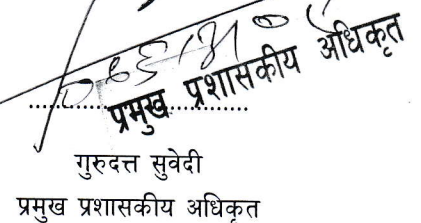 प्रमुख प्रशासकीय अधिकृत
गुरुदत्त सुवेदी
प्रमुख प्रशासकीय अधिकृत